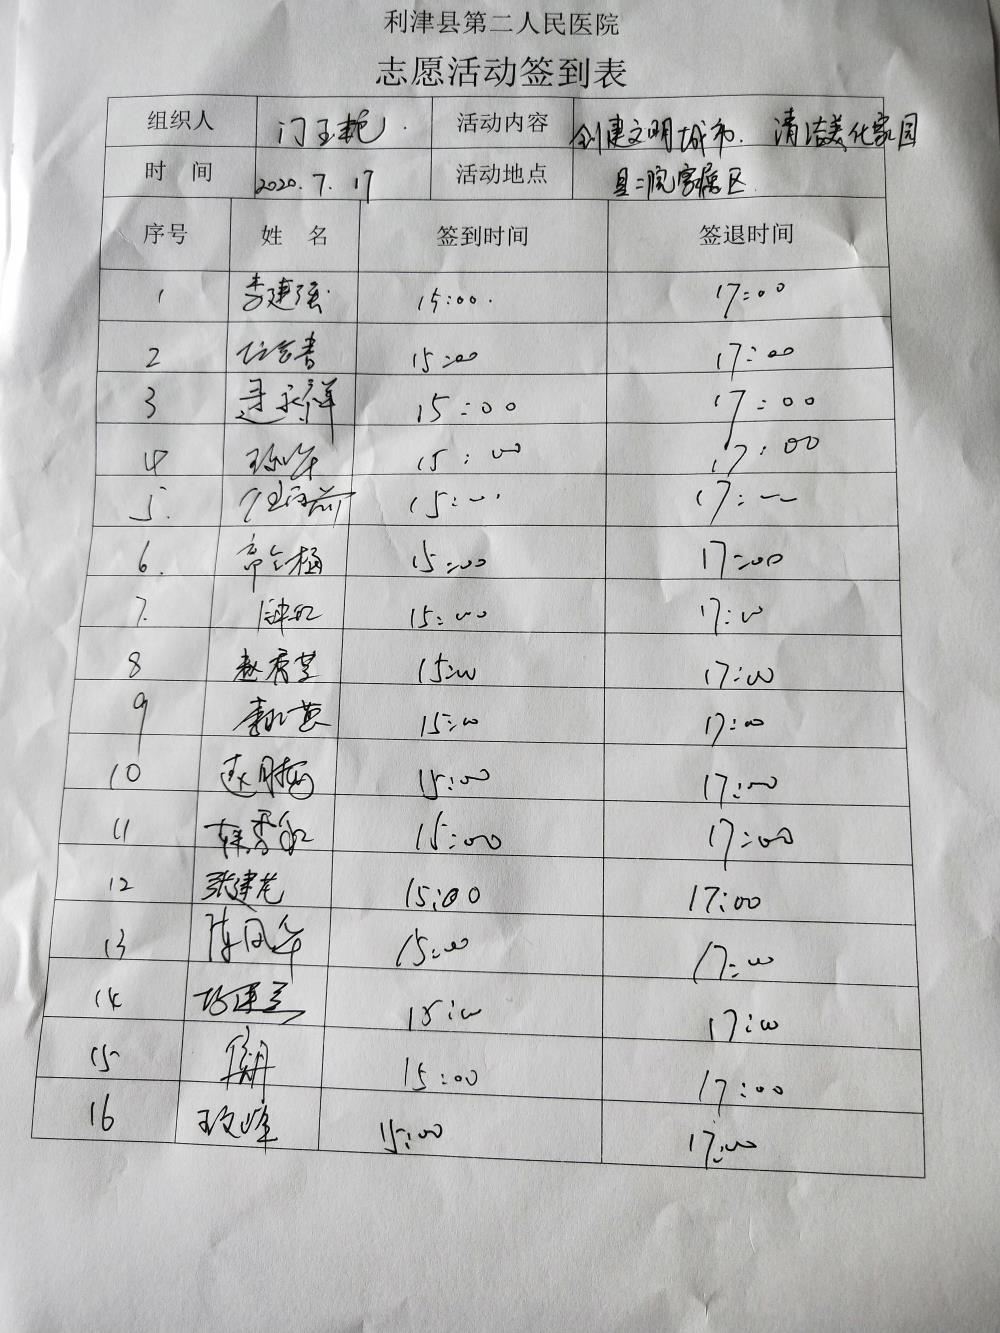 利津县第二人民医院
志愿活动签到表
组织人 门玉艳 活动内容 创建文明城市. 清洁美化家园
时 间 2020.7.17 活动地点 县二院家属区
序号 姓 名 签到时间 签退时间
1 李建强 15:00 17:00
2 15:00 17:00
3 寻永祥 15:00 17:00
4 15:00 17:00
5. 15:00 17:00
6. 15:00 17:00
7. 15:00 17:00
8 赵秀芝 15:00 17:00
9 15:00 17:00
10 15:00 17:00
11 15:00 17:00
12 张建花 15:00 17:00
13 陈凤华 15:00 17:00
14 15:00 17:00
15 15:00 17:00
16 15:00 17:00